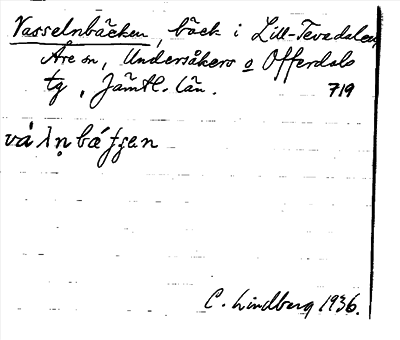 Vasselnbäcken, bäck i Lill-Tevedalen,
Åre sn, Undersåkers o Offerdals
tg, Jämtl. län. 719
C. Lindberg 1936.